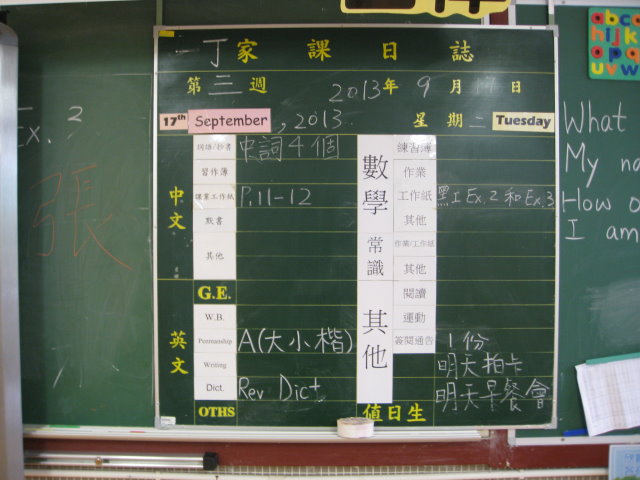 一丁家課日誌
第三週 2013年9月17日
17th September, 2013. 星期二 Tuesday
中文
詞語/抄書 中詞4個
習作簿
課業工作紙 P.11-12
默書
其他
G.E.
英文
W.B.
Penmanship A(大小楷)
Writing
Dict. Rev Dict.
OTHS
數學
練習簿
作業
工作紙 黑工Ex.2和Ex.3
其他
常識
作業/工作紙
其他
其他
閱讀
運動
簽閱通告 1份
明天拍卡
明天早餐會
值日生
Ex. 2
張
What
My na
How o
I am
abc
hijk
opq
uvw